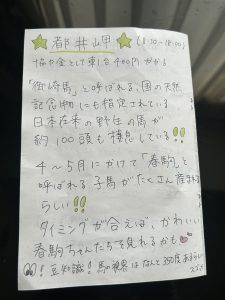 都井岬 (8:30~18:00)
協力金として車1台 400円 かかる
「御崎馬」と呼ばれる、国の天然
記念物にも指定されている
日本在来の野生の馬が
約100頭も棲息している!!
4~5月にかけて「春駒」と
呼ばれる子馬がたくさん産まれる
らしい!!
タイミングが合えば、かわいい
春駒ちゃんたちを見れるかも
!豆知識! 馬の視界はなんと350度あるらしい